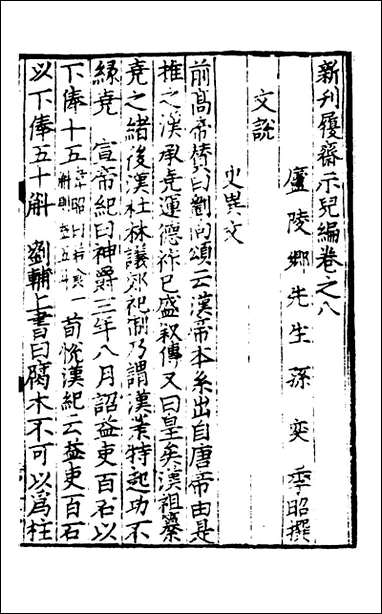 新刊履齋示兒編卷之八
廬陵鄉先生孫奕季昭撰
文說
史異文
前髙帝賛曰劉向頌云漢帝本系出自唐帝由是
推之漢承堯運德祚已盛叙傳又曰皇矣漢祖纂
堯之緒後漢杜林議郊祀制乃謂漢業特起功不
緣堯　宣帝紀曰神爵三年八月詔益吏百石以
下俸十五韋昭曰若食一斛則益五斗荀悅漢紀云益吏百石
以下俸五十斛　劉輔上書曰腐木不可以爲柱